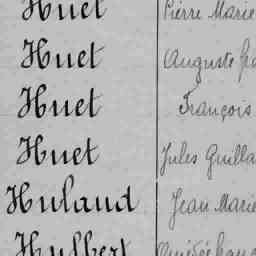 Huet Pierre Marie
Huet Auguste
Huet François
Huet Jules
Huland Jean Marie
Hulbert